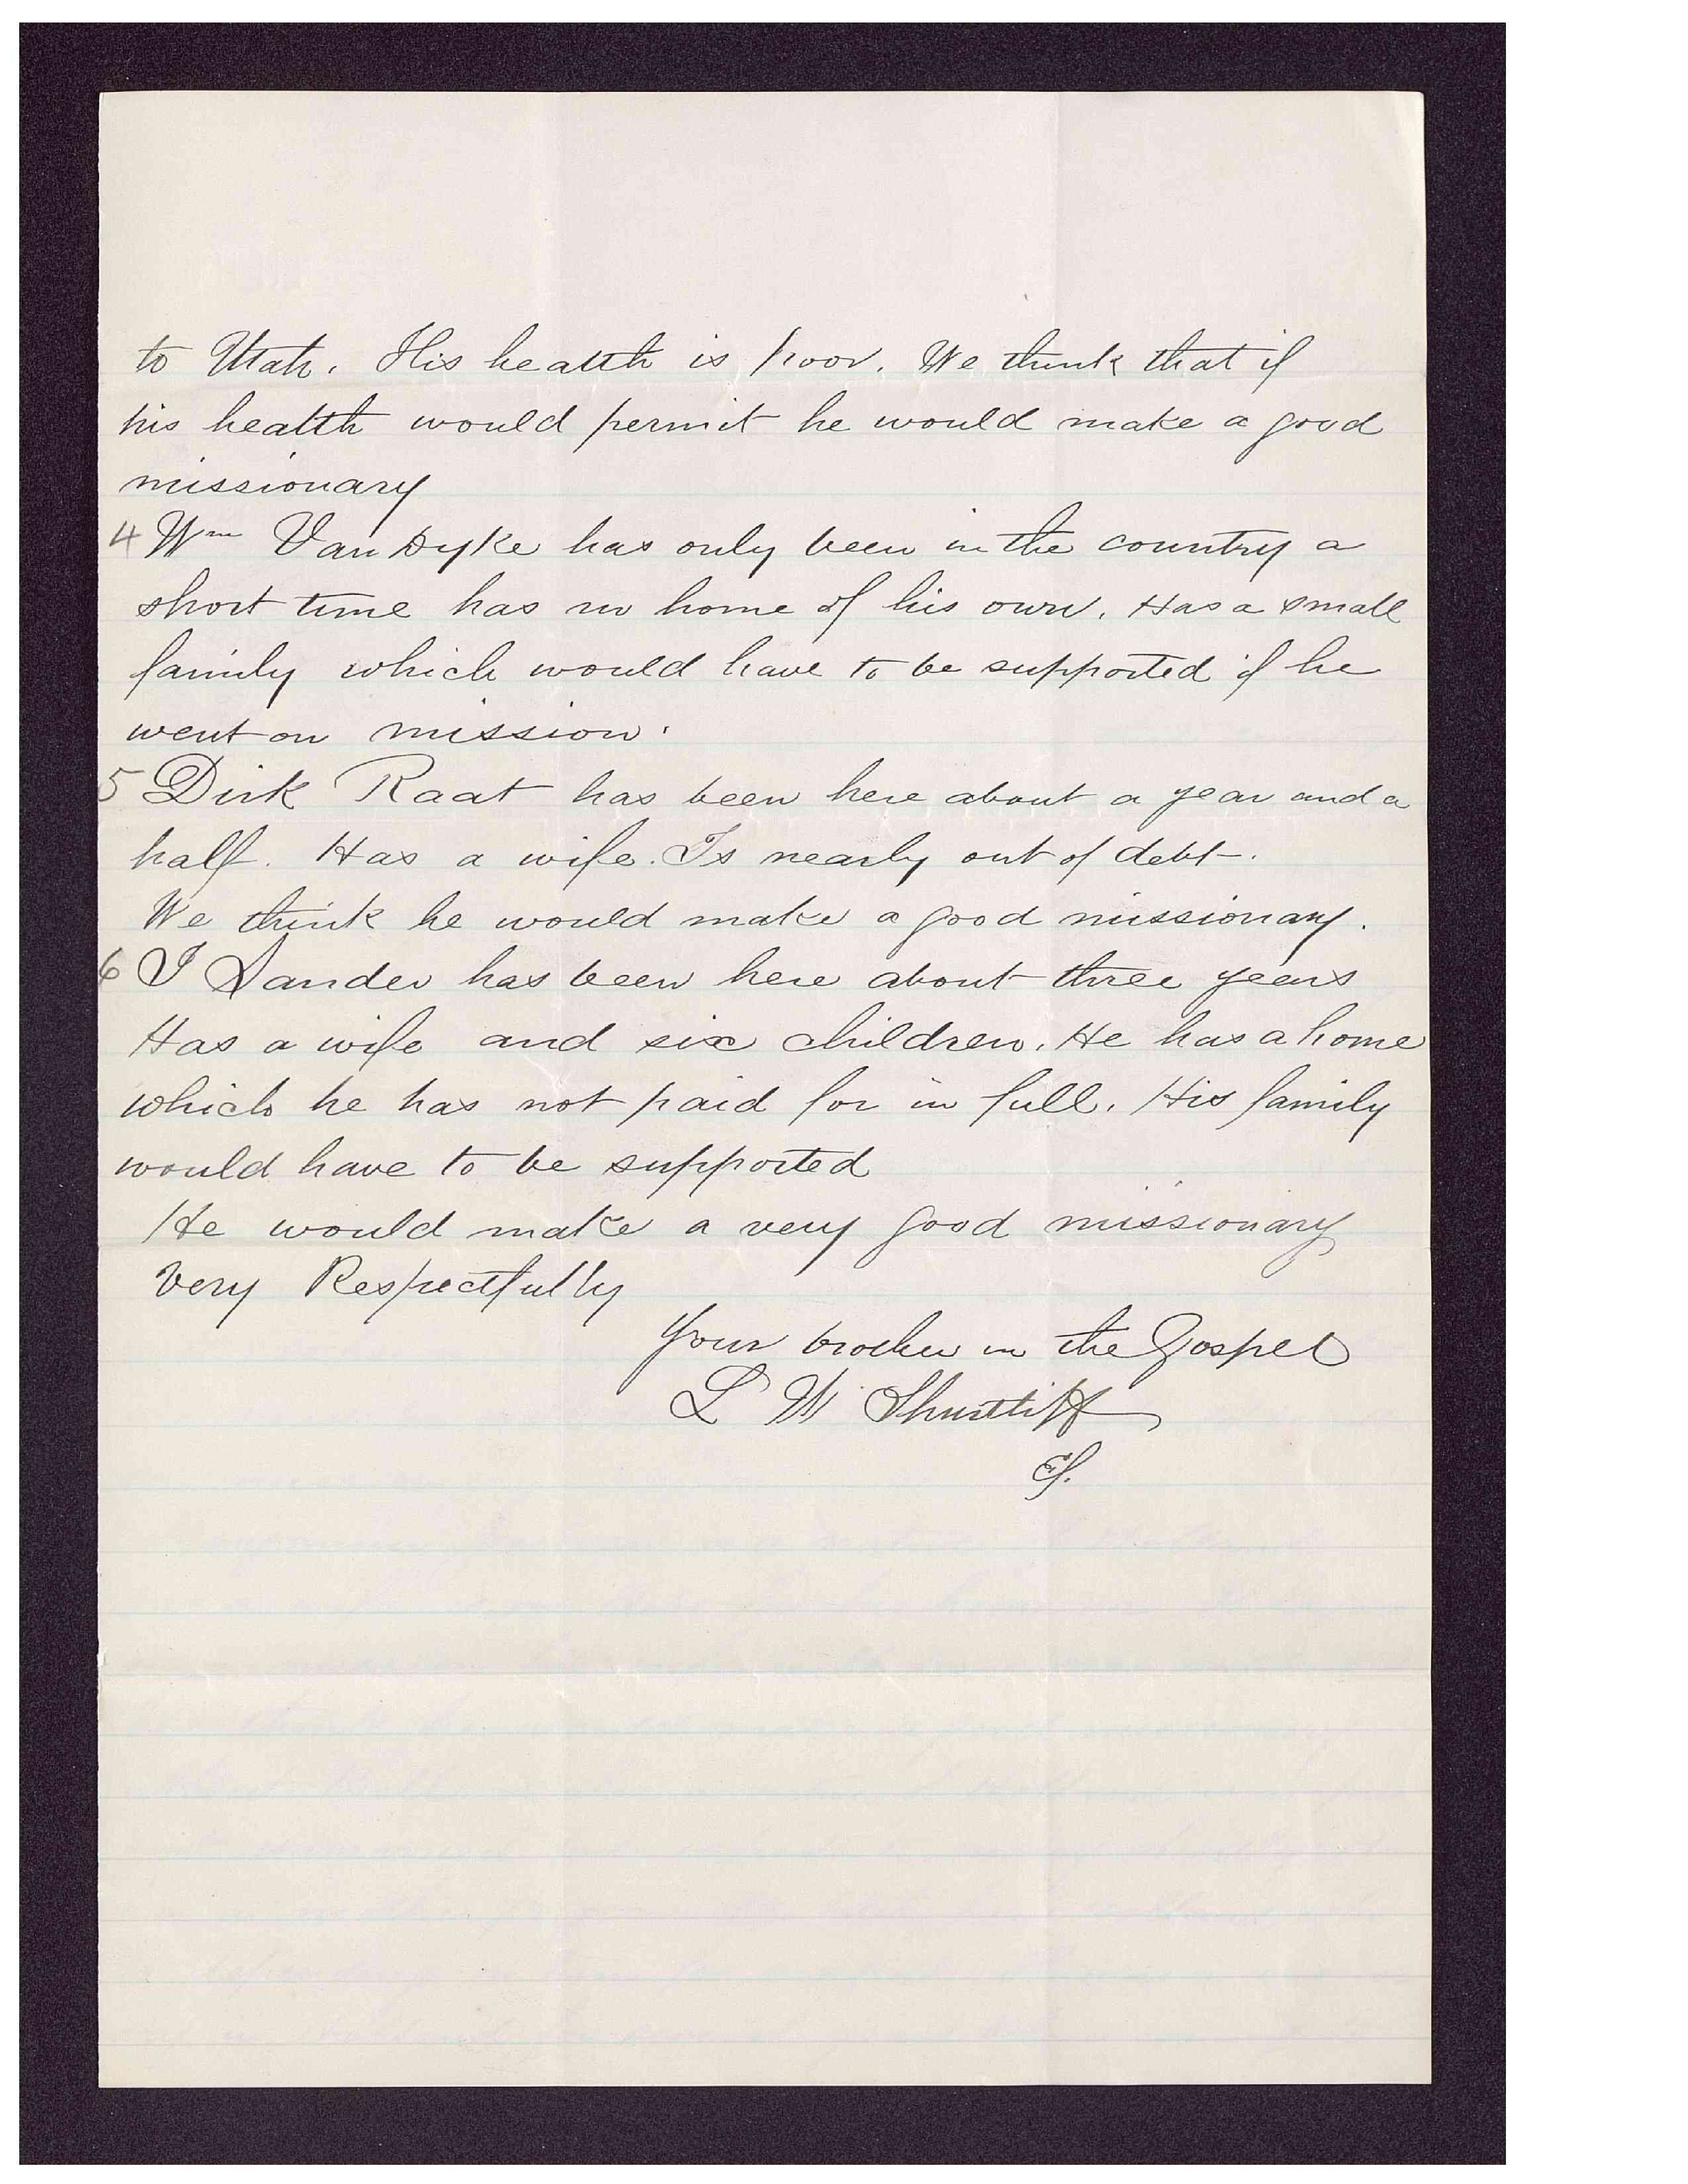 to Utah. His health is poor. We think that if
his health would permit he would make a good
missionary
4 Wm Van Dyke has only been in the country a
short time has no home of his own. Has a small
family which would have to be supported if he
went on mission.
5 Dirk Raat has been here about a year and a
half. Has a wife. Is nearly out of debt.
We think he would make a good missionary.
6 I Sander has been here about three years
Has a wife and six children. He has a home
which he has not paid for in full. His family
would have to be supported
He would make a very good missionary
Very Respectfully
Your brother in the Gospel
L W Shurtliff